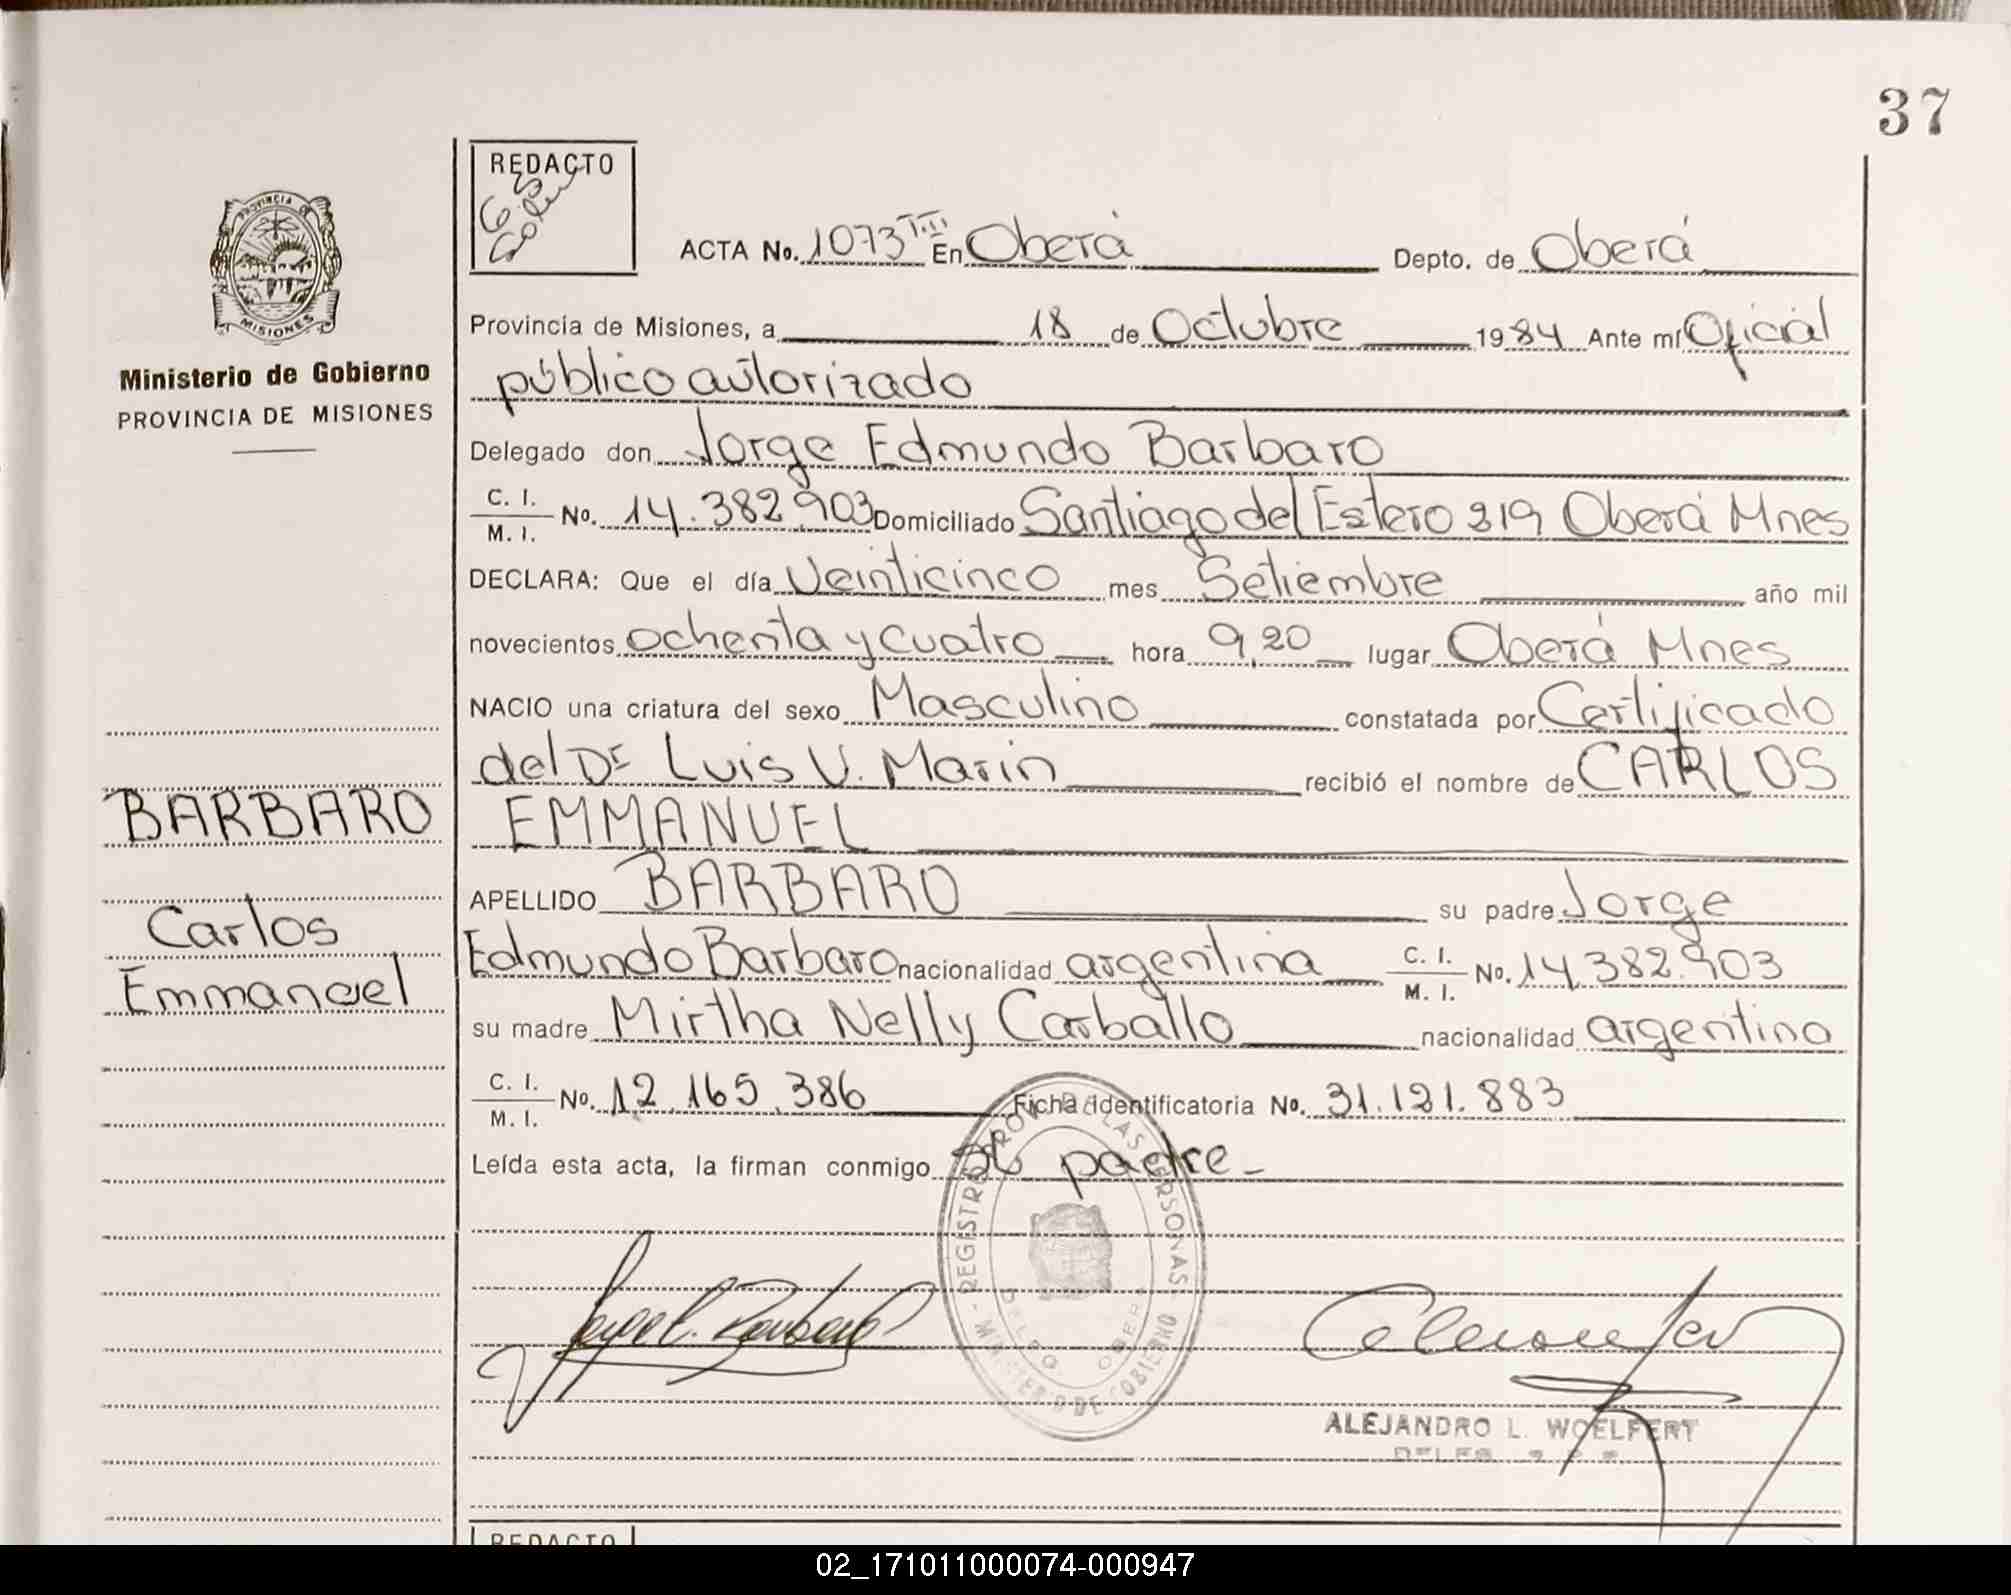 37
REDACTO
ACTA No. 1073 T.II En Oberá Depto. de Oberá
PROVINCIA DE
MISIONES
Ministerio de Gobierno
PROVINCIA DE MISIONES
Provincia de Misiones, a 18 de Octubre 1984 Ante mí Oficial
público autorizado
Delegado don Jorge Edmundo Barbaro
C. I.
M. I. No. 14.382.903 Domiciliado Santiago del Estero 319 Oberá Mnes
DECLARA: Que el día Veinticinco mes Setiembre año mil
novecientos ochenta y cuatro hora 9,20 lugar Oberá Mnes
NACIO una criatura del sexo Masculino constatada por Certificado
del Dr Luis V. Marin recibió el nombre de CARLOS
EMMANUEL
APELLIDO BARBARO su padre Jorge
Edmundo Barbaro nacionalidad argentina C. I.
M. I. No. 14.382.903
su madre Mirtha Nelly Carballo nacionalidad argentina
C. I.
M. I. No. 12.165.386 Ficha identificatoria No. 31.121.883
Leída esta acta, la firman conmigo su padre-
BARBARO
Carlos
Emmanuel
REGISTRO DE LAS PERSONAS
MINISTERIO DE GOBIERNO
DELEG. OBERA
ALEJANDRO L. WOELFERT
REDACTO
02_171011000074-000947